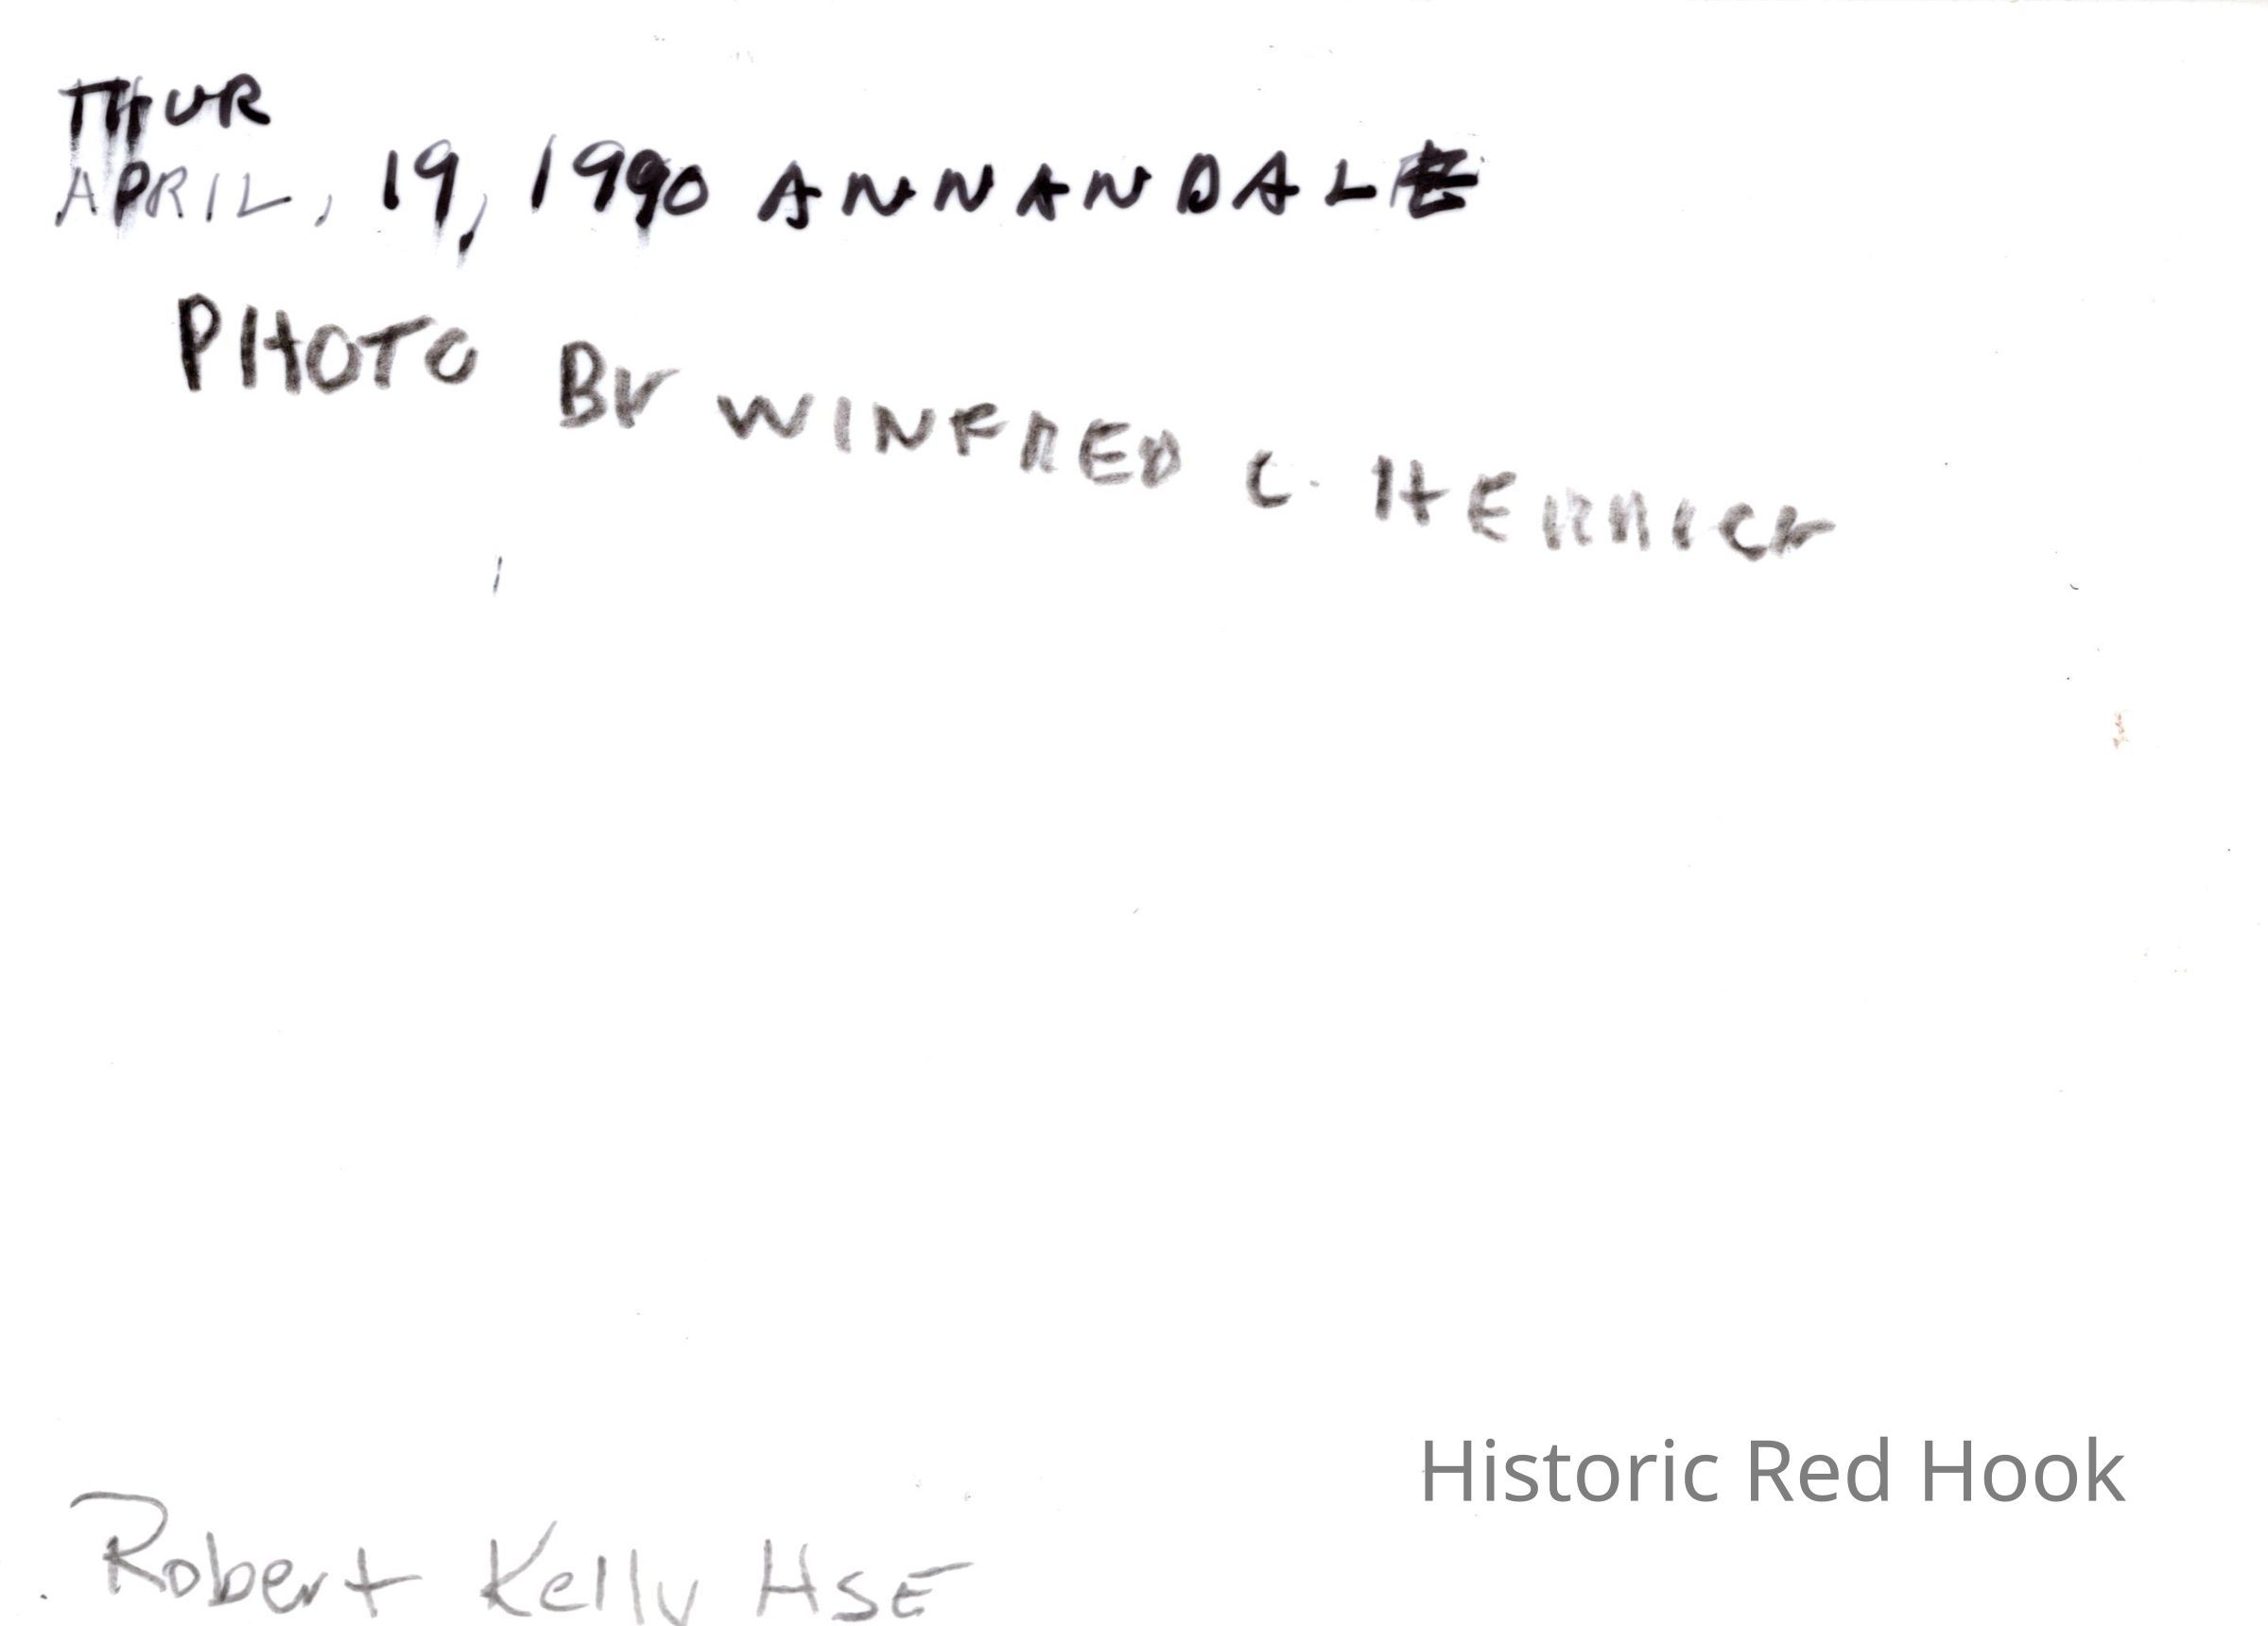 THUR
APRIL, 19, 1990 ANNANDALE
PHOTO BY WINFRED C. HERRICK
Historic Red Hook
Robert Kelly HSE